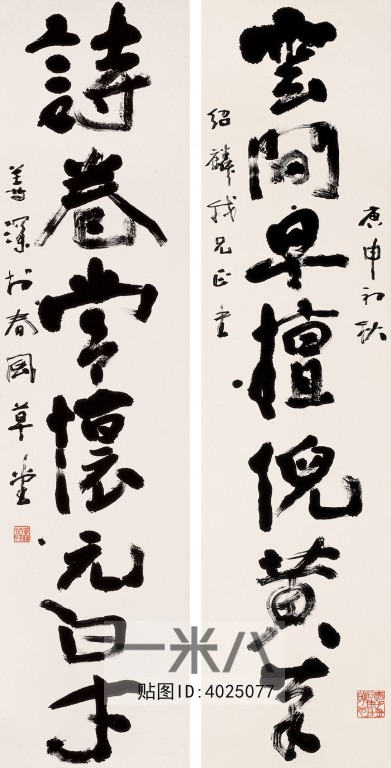 庚申初秋
雲間早擅倪黄筆
紹麟我兄正之
詩卷常懷元白才
善深於春園草堂
一米八
贴图ID:4025077